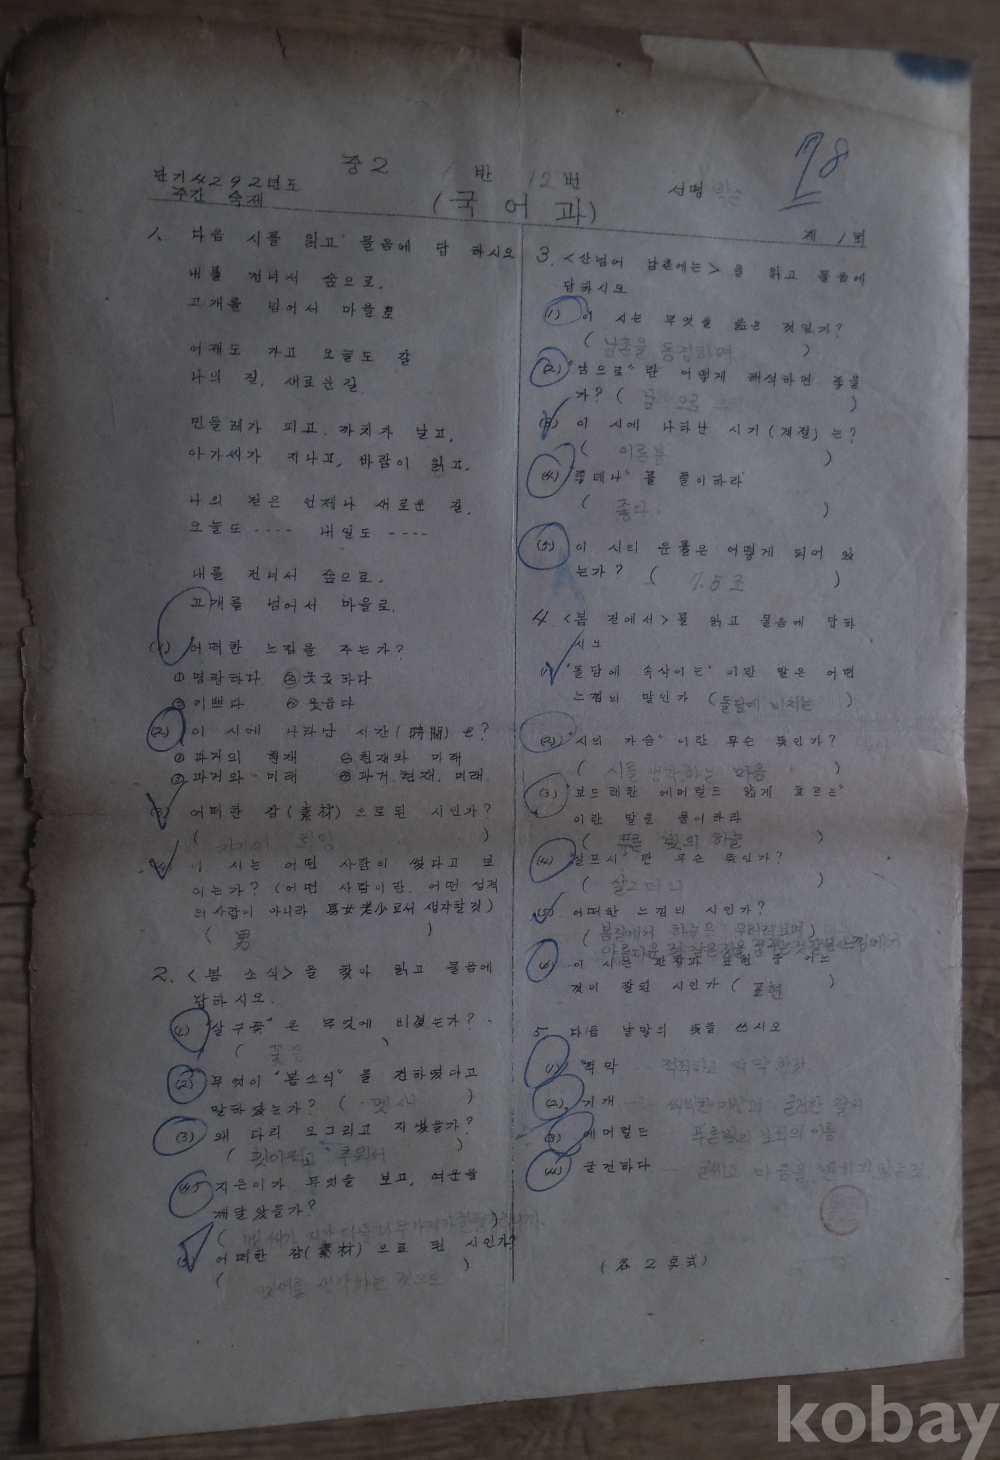 단기 4292년도
주간 숙제
중2 반 12번
(국어과)
성명
78
제 1회
1. 다음 시를 읽고 물음에 답 하시오
내를 건너서 숲으로.
고개를 넘어서 마을로
어제도 가고 오늘도 갈
나의 길. 새로운 길
민들레가 피고 까치가 날고.
아가씨가 지나고, 바람이 일고.
나의 길은 언제나 새로운 길.
오늘도 ---- 내일도 ----
내를 건너서 숲으로.
고개를 넘어서 마을로.
(1) 어떠한 느낌을 주는가?
① 명랑하다 ② 굿굿하다
③ 기쁘다 ④ 웃읍다
(2) 이 시에 나타난 시간(時間)은?
① 과거의 현재 ② 현재와 미래
③ 과거와 미래 ④ 과거, 현재, 미래.
(3) 어떠한 감(素材)으로된 시인가?
( 희망 )
(4) 이 시는 어떤 사람이 썼다고 보
이는가? (어떤 사람이란. 어떤 성격
의사람이 아니라 男女老少로서 생각할것)
( 男 )
2. <봄 소식>을 찾아 읽고 물음에
답하시오.
(1) "살구꽃"은 무엇에 비겼는가?
( )
(2) 무엇이 "봄소식"을 전하였다고
말하였는가? ( 멧새 )
(3) 왜 다리 오그리고 지났을가?
( 추워서 )
(4) 지은이가 무엇을 보고, 여운을
깨달았을가?
(5) 어떠한 감(素材)으로 된 시인가?
( 멧새를 생각하는 것으로 )
3. <산넘어 남촌에는>을 읽고 물음에
답하시오
(1) 이 시는 무엇을 읊은 것인가?
( 남촌을 동경하며 )
(2) "남으로"란 어떻게 해석하면 좋을
가? ( )
(3) 이 시에 나타난 시기(계절)는?
( 이른봄 )
(4) "좋데나"를 풀이하라
( 좋다. )
(5) 이 시의 운률은 어떻게 되어 있
는가? ( 7.5조 )
4 <봄 길에서>를 읽고 물음에 답하
시오
(1) "돌담에 속삭이는"이란 말은 어떤
느낌의 말인가 (돌담에 비치는 )
(2) "시의 가슴"이란 무슨 뜻인가?
( 시를 생각하는 마음 )
(3) "보드레한 에머럴드 얇게 흐르는"
이란 말을 풀이하라
( 푸른 빛의 하늘 )
(4) "살프시"란 무슨 뜻인가?
( )
(5) 어떠한 느낌의 시인가?
( 봄길에서 하늘을 우러러보며 )
(6) 이 시는 관찰과 표현 중 어느
것이 잘된 시인가 ( 표현 )
5. 다음 낱말의 뜻을 쓰시오
(1) "적막
(2) 기개 --- 씩씩한 기상과 굳건한 절개
(3) 에머럴드 푸른빛의 보석의 이름
(4) 굳건하다 --- 굳세고 마음을 변하지 않는것
(各 2点式)
kobay